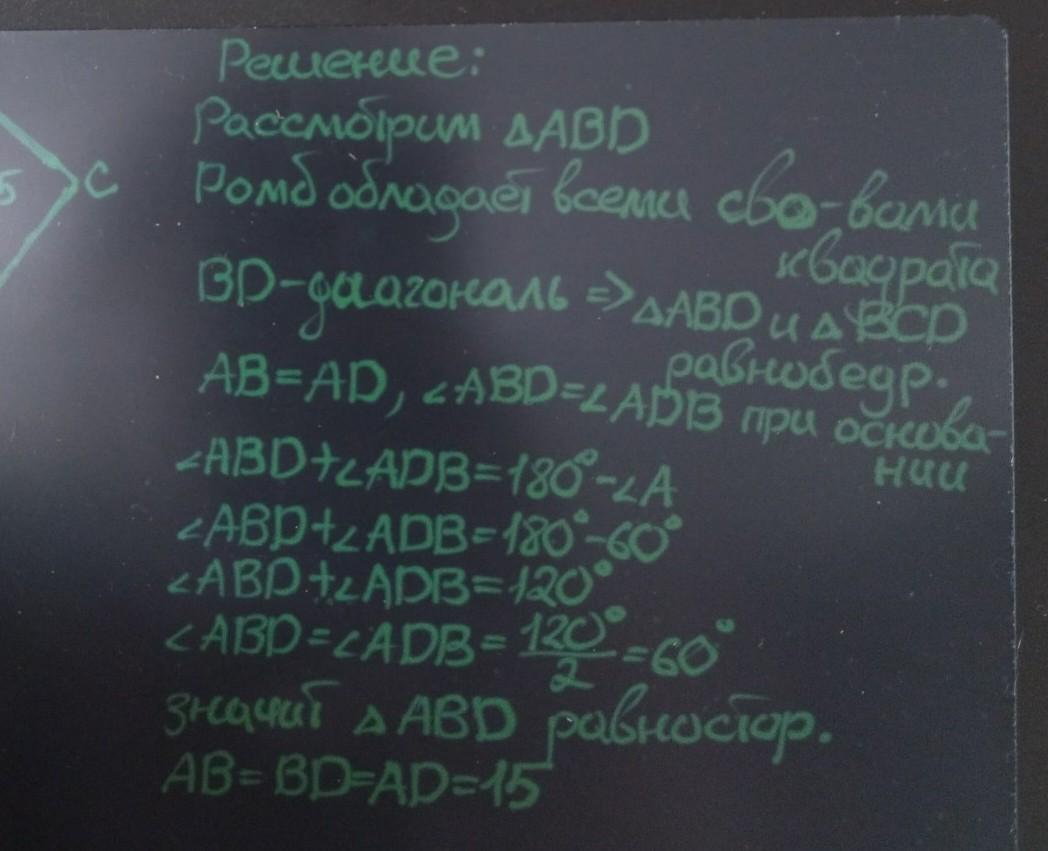 Решение:
Рассмотрим △ABD
5 C Ромб обладает всеми сво-вами
квадрата
BD-диагональ => △ABD и △BCD
равнобедр.
AB=AD, ∠ABD=∠ADB при основа-
нии
∠ABD+∠ADB=180°-∠A
∠ABD+∠ADB=180°-60°
∠ABD+∠ADB=120°
∠ABD=∠ADB=120°/2=60°
значит △ABD равностор.
AB=BD=AD=15